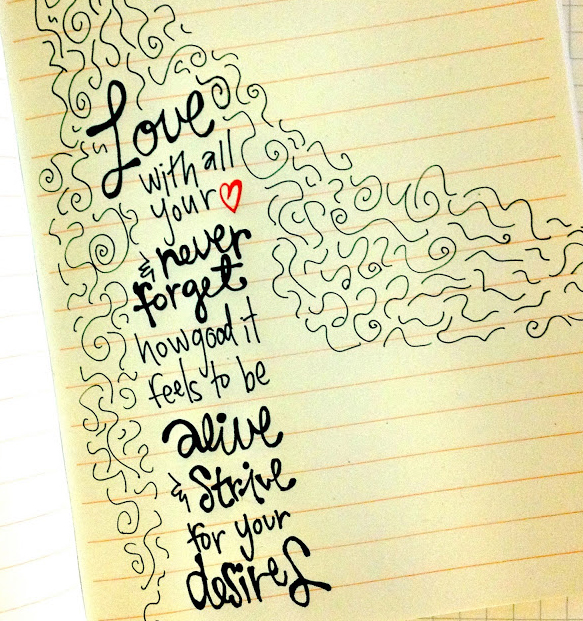 Love
with all
your ♡
& never
forget
how good it
feels to be
alive
& strive
for your
desires